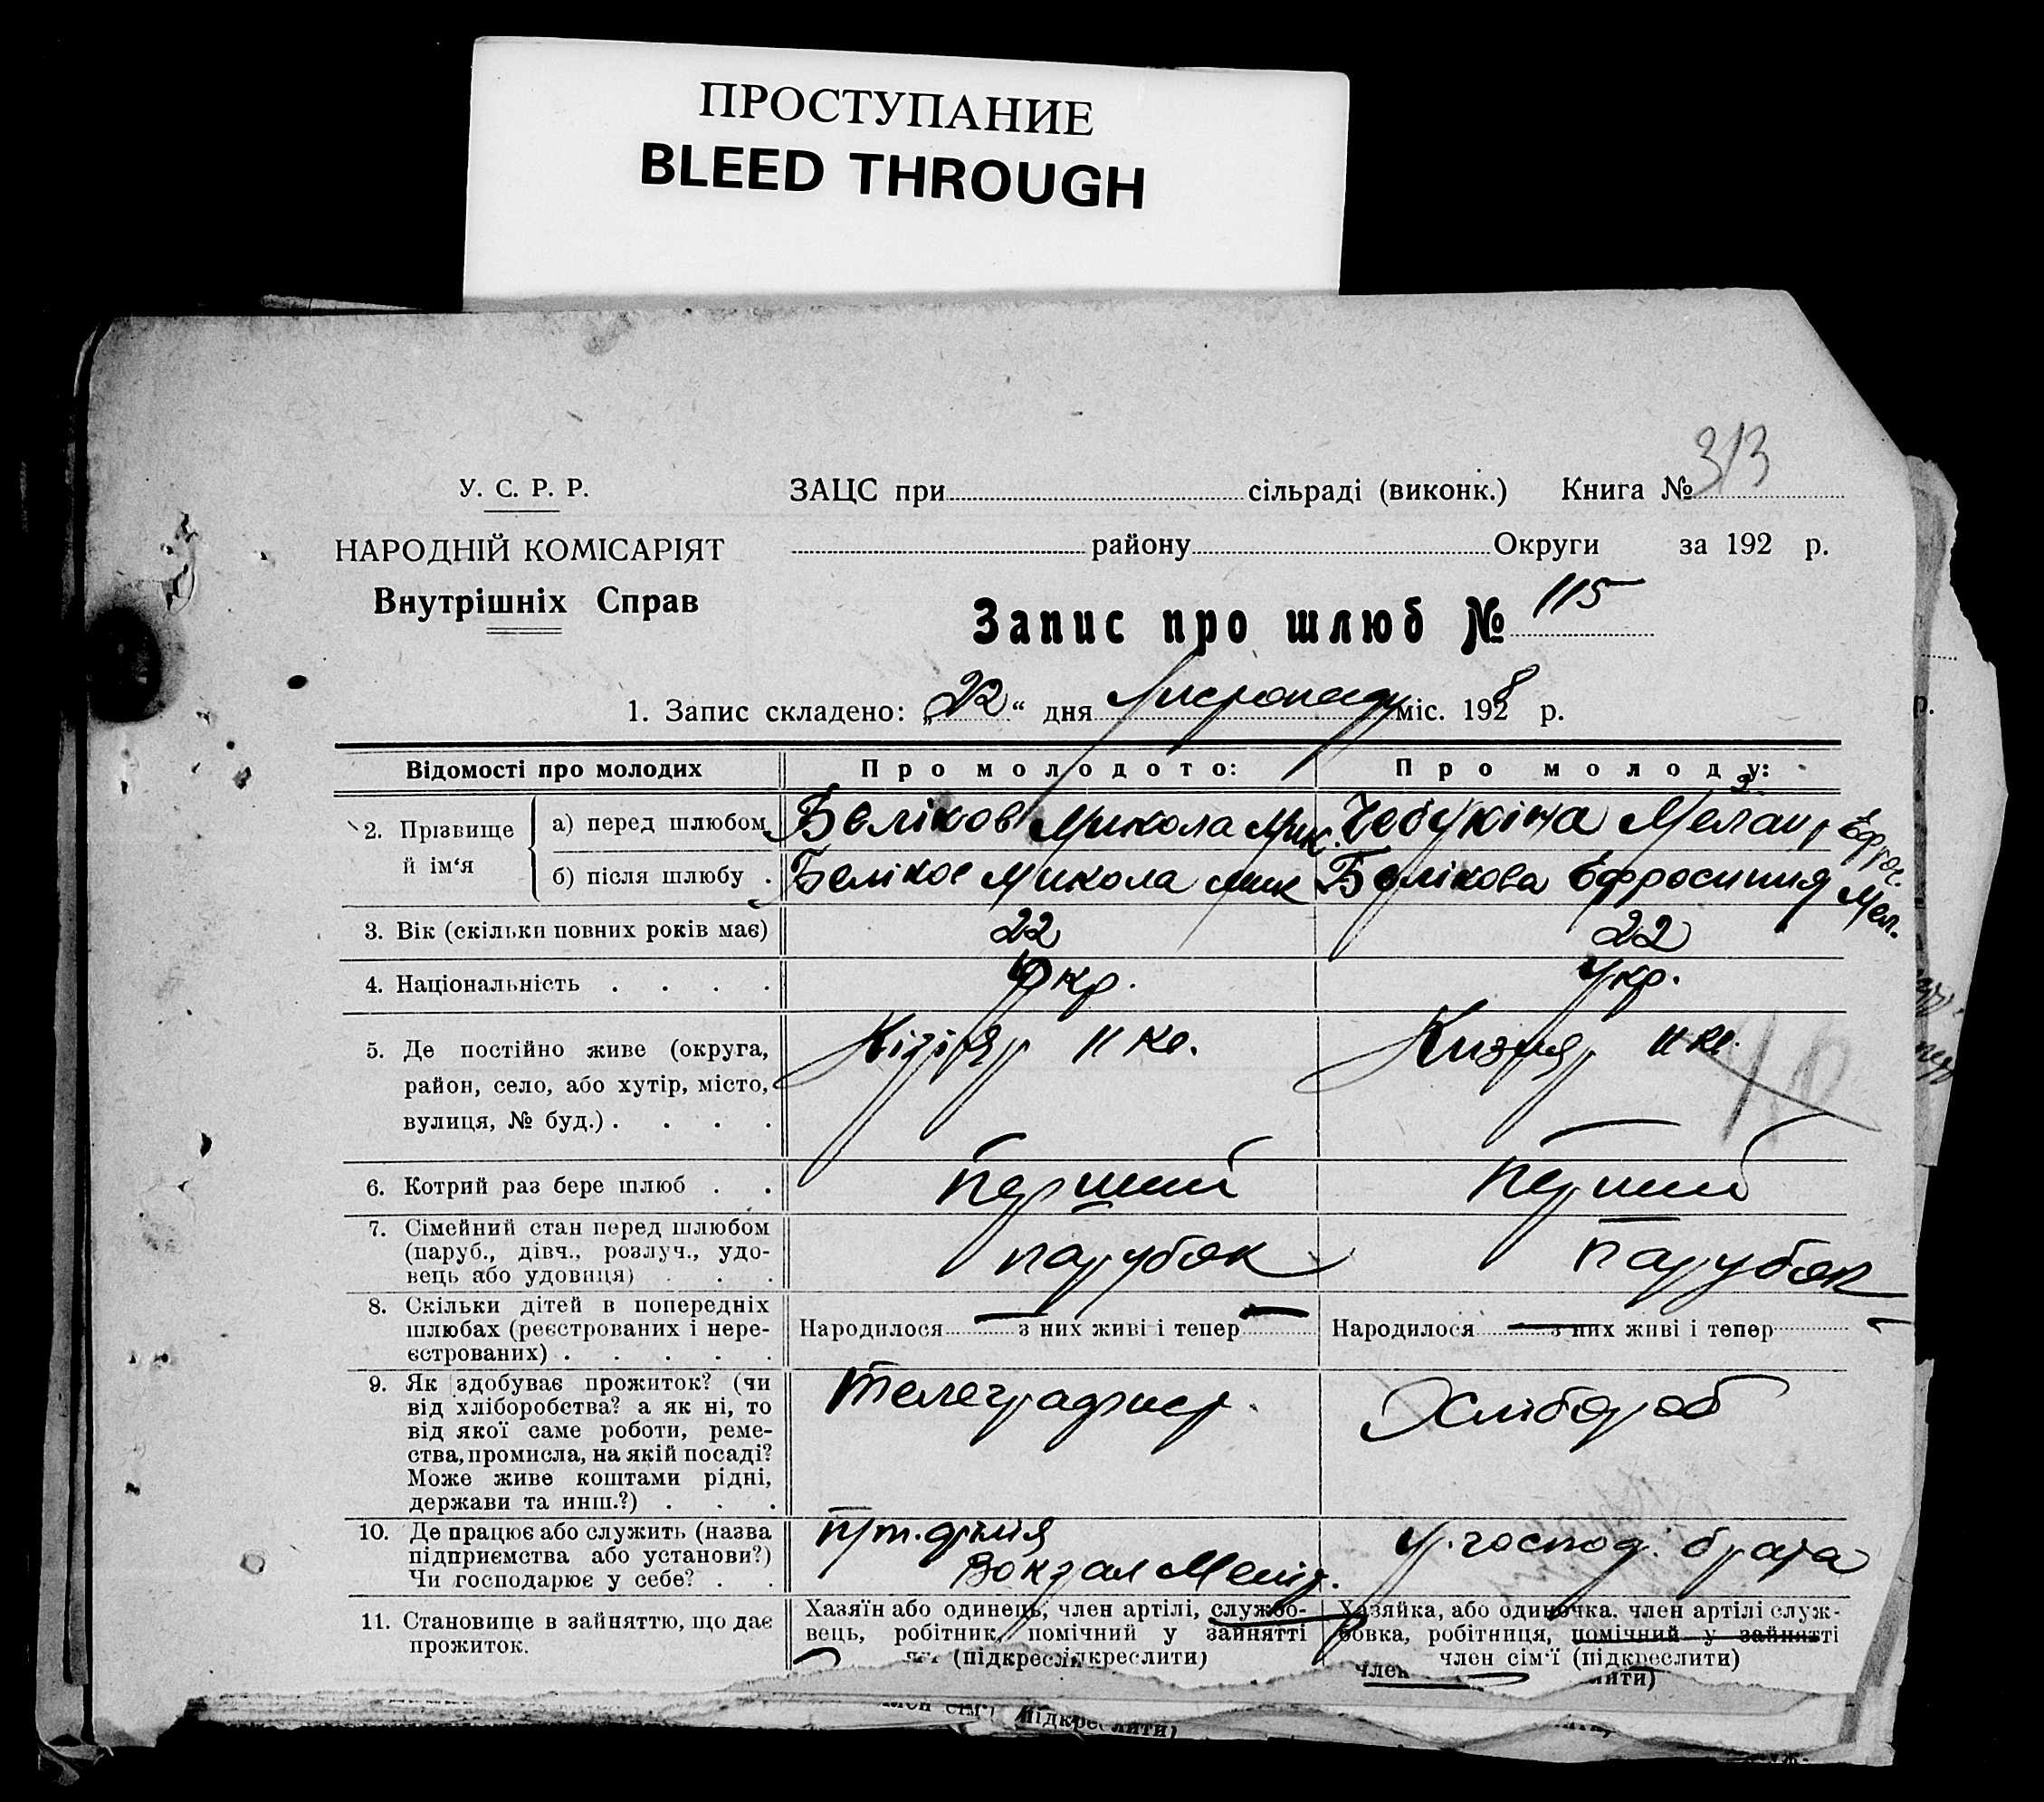 ПРОСТУПАНИЕ
BLEED THROUGH
313
У. С. Р. Р.
ЗАЦС при сільраді (виконк.) Книга №
НАРОДНІЙ КОМІСАРІЯТ
району Округи за 192 р.
Внутрішніх Справ
Запис про шлюб № 115
1. Запис складено: „22“ дня Листопаду міс. 1928 р.
Відомості про молодих
Про молодого:
Про молоду:
2. Прізвище й ім‘я
а) перед шлюбом
Беліков Микола Мик.
Чебукіна Мелан Ефрос.
б) після шлюбу .
Беліков Микола Мик
Белікова Ефросиния Мел.
3. Вік (скільки повних років має)
22
22
4. Національність . . . .
Укр.
Укр.
5. Де постійно живе (округа,
район, село, або хутір, місто,
вулиця, № буд.) . . . .
Кізіяр II кв.
Кизіяр II кв.
6. Котрий раз бере шлюб . .
Перший
Перший
7. Сімейний стан перед шлюбом
(паруб., дівч., розлуч., удо-
вець або удовиця) . . .
парубок
парубок
8. Скільки дітей в попередніх
шлюбах (реєстрованих і нере-
єстрованих) . . . . .
Народилося — з них живі і тепер —
Народилося — з них живі і тепер —
9. Як здобуває прожиток? (чи
від хліборобства? а як ні, то
від якої саме роботи, реме-
ства, промисла, на якій посаді?
Може живе коштами рідні,
держави та инш.?) . . .
Телеграфист.
Хлібороб
10. Де працює або служить (назва
підприємства або установи?)
Чи господарює у себе? . .
п/т. філія
Вокзал Меліт.
У. господ. брата
11. Становище в зайняттю, що дає
прожиток.
Хазяїн або одинець, член артілі, службо-
вець, робітник, помічний у зайнятті
(підкреслити)
Хазяйка, або одиночка, член артілі служ-
бовка, робітниця, помічний у зайнятті
член сім‘ї (підкреслити)
член